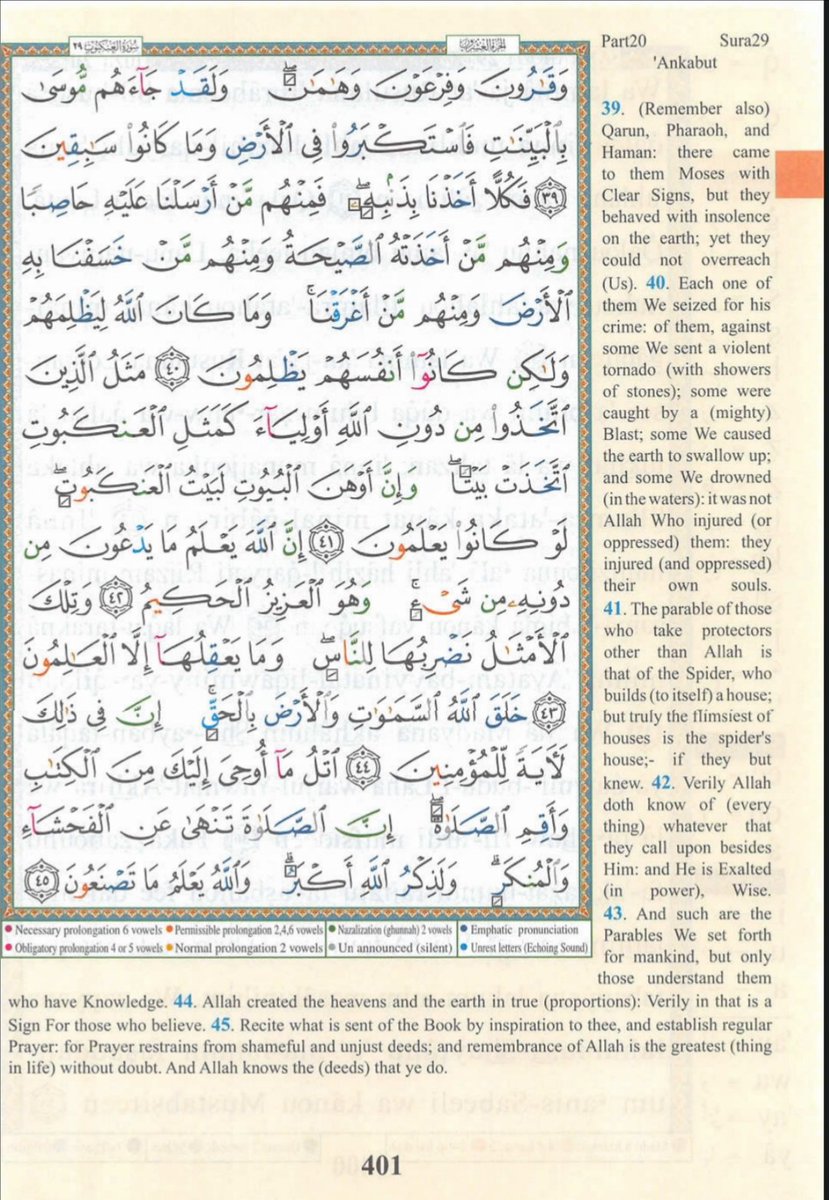 سُورَةُ العَنكبوت ٢٩
الجُزءُ العِشرُون
Part20 Sura29
'Ankabut
وَقَٰرُونَ وَفِرْعَوْنَ وَهَٰمَٰنَۖ وَلَقَدْ جَآءَهُم مُّوسَىٰ
بِٱلْبَيِّنَٰتِ فَٱسْتَكْبَرُوا۟ فِى ٱلْأَرْضِ وَمَا كَانُوا۟ سَٰبِقِينَ
٣٩ فَكُلًّا أَخَذْنَا بِذَنۢبِهِۦۖ فَمِنْهُم مَّنْ أَرْسَلْنَا عَلَيْهِ حَاصِبًا
وَمِنْهُم مَّنْ أَخَذَتْهُ ٱلصَّيْحَةُ وَمِنْهُم مَّنْ خَسَفْنَا بِهِ
ٱلْأَرْضَ وَمِنْهُم مَّنْ أَغْرَقْنَاۚ وَمَا كَانَ ٱللَّهُ لِيَظْلِمَهُمْ
وَلَٰكِن كَانُوٓا۟ أَنفُسَهُمْ يَظْلِمُونَ ٤٠ مَثَلُ ٱلَّذِينَ
ٱتَّخَذُوا۟ مِن دُونِ ٱللَّهِ أَوْلِيَآءَ كَمَثَلِ ٱلْعَنكَبُوتِ
ٱتَّخَذَتْ بَيْتًاۖ وَإِنَّ أَوْهَنَ ٱلْبُيُوتِ لَبَيْتُ ٱلْعَنكَبُوتِۖ
لَوْ كَانُوا۟ يَعْلَمُونَ ٤١ إِنَّ ٱللَّهَ يَعْلَمُ مَا يَدْعُونَ مِن
دُونِهِۦ مِن شَىْءٍۚ وَهُوَ ٱلْعَزِيزُ ٱلْحَكِيمُ ٤٢ وَتِلْكَ
ٱلْأَمْثَٰلُ نَضْرِبُهَا لِلنَّاسِۖ وَمَا يَعْقِلُهَآ إِلَّا ٱلْعَٰلِمُونَ
٤٣ خَلَقَ ٱللَّهُ ٱلسَّمَٰوَٰتِ وَٱلْأَرْضَ بِٱلْحَقِّۚ إِنَّ فِى ذَٰلِكَ
لَءَايَةً لِّلْمُؤْمِنِينَ ٤٤ ٱتْلُ مَآ أُوحِىَ إِلَيْكَ مِنَ ٱلْكِتَٰبِ
وَأَقِمِ ٱلصَّلَوٰةَۖ إِنَّ ٱلصَّلَوٰةَ تَنْهَىٰ عَنِ ٱلْفَحْشَآءِ
وَٱلْمُنكَرِۗ وَلَذِكْرُ ٱللَّهِ أَكْبَرُۗ وَٱللَّهُ يَعْلَمُ مَا تَصْنَعُونَ ٤٥
Necessary prolongation 6 vowels Permissible prolongation 2,4,6 vowels Nazalization (ghunnah) 2 vowels Emphatic pronunciation
Obligatory prolongation 4 or 5 vowels Normal prolongation 2 vowels Un announced (silent) Unrest letters (Echoing Sound)
39. (Remember also)
Qarun, Pharaoh, and
Haman: there came
to them Moses with
Clear Signs, but they
behaved with insolence
on the earth; yet they
could not overreach
(Us). 40. Each one of
them We seized for his
crime: of them, against
some We sent a violent
tornado (with showers
of stones); some were
caught by a (mighty)
Blast; some We caused
the earth to swallow up;
and some We drowned
(in the waters): it was not
Allah Who injured (or
oppressed) them: they
injured (and oppressed)
their own souls.
41. The parable of those
who take protectors
other than Allah is
that of the Spider, who
builds (to itself) a house;
but truly the flimsiest of
houses is the spider's
house;- if they but
knew. 42. Verily Allah
doth know of (every
thing) whatever that
they call upon besides
Him: and He is Exalted
(in power), Wise.
43. And such are the
Parables We set forth
for mankind, but only
those understand them
who have Knowledge. 44. Allah created the heavens and the earth in true (proportions): Verily in that is a
Sign For those who believe. 45. Recite what is sent of the Book by inspiration to thee, and establish regular
Prayer: for Prayer restrains from shameful and unjust deeds; and remembrance of Allah is the greatest (thing
in life) without doubt. And Allah knows the (deeds) that ye do.
401